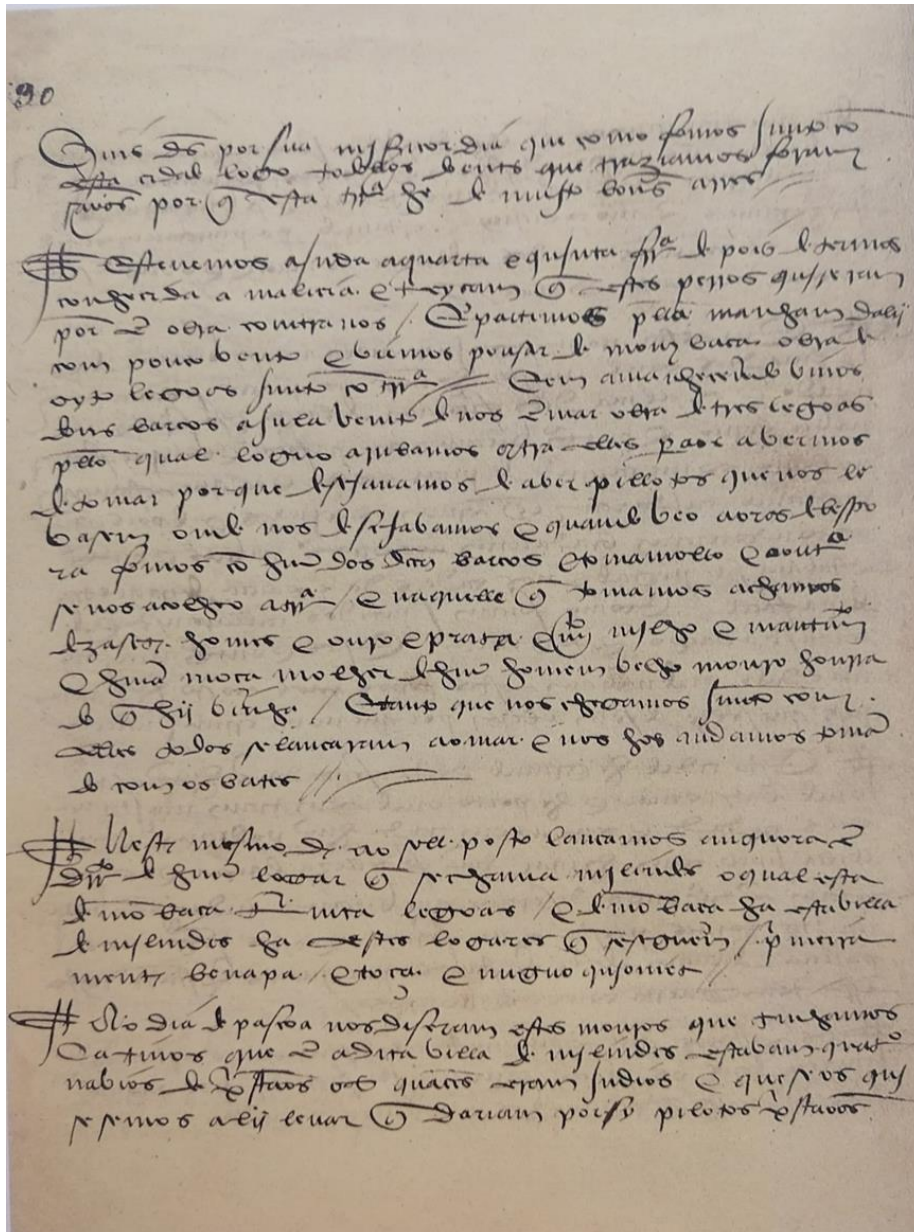 90
Quis ds por sua mjsericordia que como fomos Junto cõ
esta cidade logo todollos doentes que traziamos foram
sãaos por q̃ esta trra he de muyto boõs ayres
Estevemos ajnda a quarta e qujnta frª depois de termos
conhecida a malicia e treycam q̃ estes perros qujseram
por ẽ obra contra nos / E partimos pella manham dalij
com pouco bento e biemos pousar de mombaca obra de
oyto legoas Junto cõ trrª E em amanhecendo bimos
dous barcos a Julavento de nos ẽ mar obra de tres legoas
pello qual loguo arribamos contra elles pera os abermos
de tomar por que desejavamos de aber pillotos que nos le
basem onde nos desejabamos e quando beo a oras de bespo
ra fomos cõ huũ dos dctos barcos e tomamollo e o outº
se nos acolheo a trrª / e naquelle q̃ tomamos achamos
dezasete homes e ouro e prata e mto mjlho e mantimto
e huã moca molher de huũ homem belho mouro honra
do q̃ hij bijnha / E tanto que nos chegamos Junto com
elles todos se lancaram ao mar e nos hos andamos tomã
do com os bates
Neste mesmo dia ao soll posto lancamos anquora ẽ
drto de huũ logar q̃ se chama mjlinde o qual esta
de mõbaca trinta legoas / e de mõbaca ha esta billa
de mjlindes ha estes logares q̃ se seguem / primeira
mente benapa / e toca e nuguo qujonies /
No dia de pascoa nos diseram estes mouros que tinhamos
catiuos que ẽ a dita billa de mjlindes estabam quatº
nabios de x̃pstãos os quaees eram Jndios e que se os quj
sesemos alij leuar q̃ dariam por sy pilotos x̃pstãos